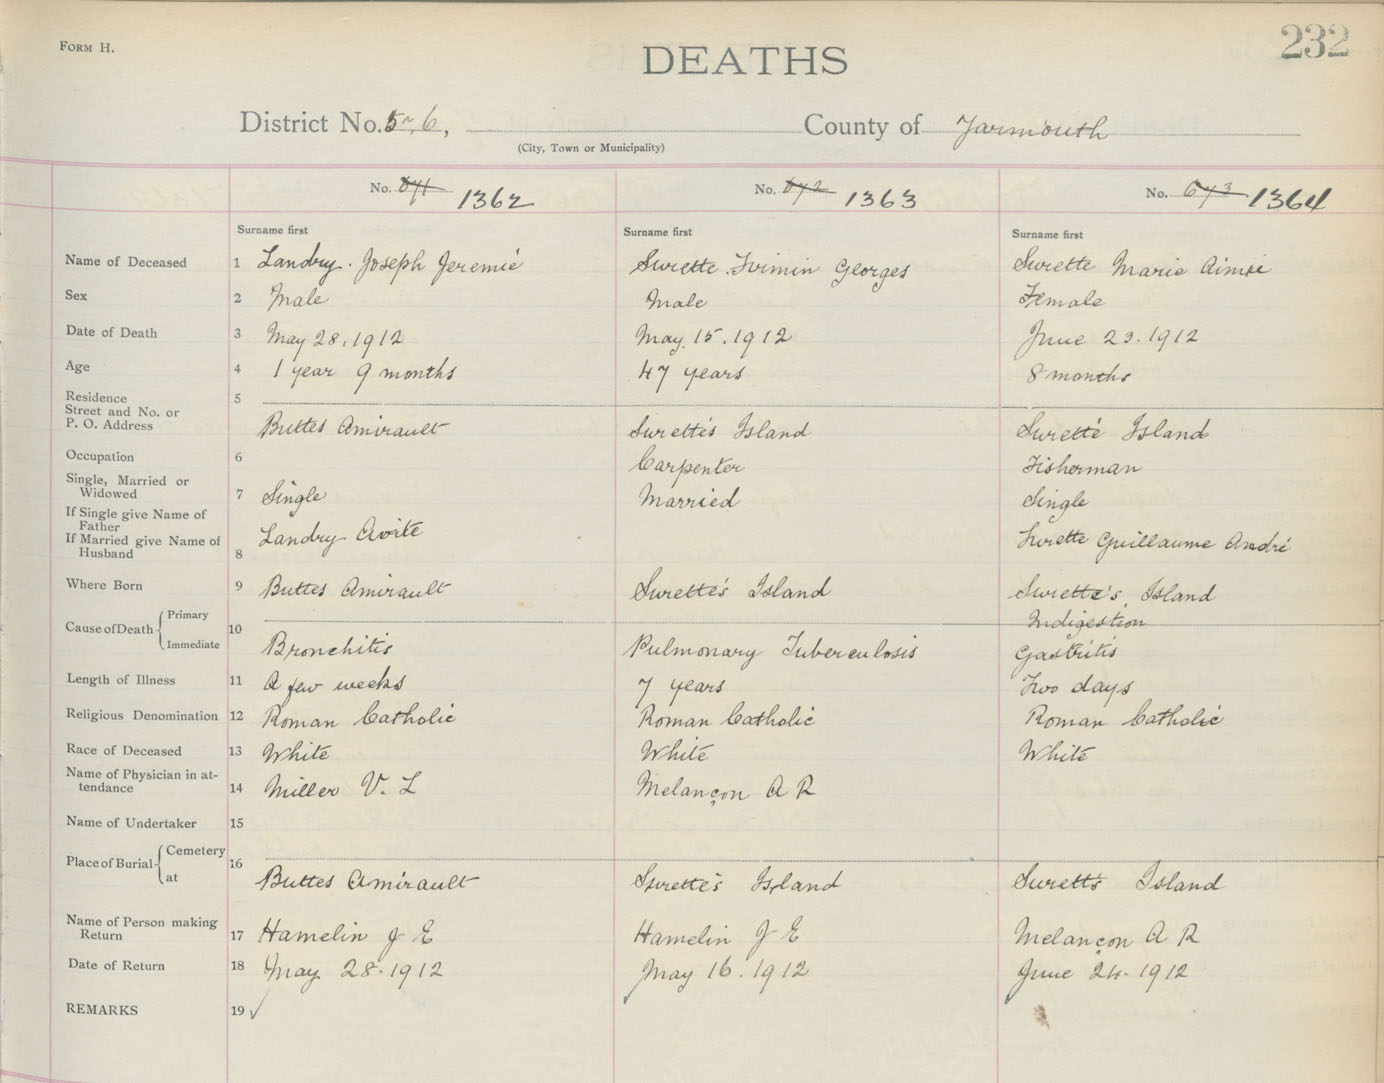 FORM H.
232
DEATHS
District No. 5 n, 6, County of Yarmouth
(City, Town or Municipality)
No. 671 1362 No. 672 1363 No. 673 1364
Surname first Surname first Surname first
Name of Deceased 1 Landry. Joseph Jeremie Surette Georges Surette Marie
Sex 2 Male Male Female
Date of Death 3 May 28, 1912 May. 15, 1912 June 23. 1912
Age 4 1 year 9 months 47 years 8 months
Residence 5
Street and No. or
P. O. Address Buttes Amirault Surette's Island Surette Island
Occupation 6 Carpenter Fisherman
Single, Married or
Widowed 7 Single Married Single
If Single give Name of
Father
If Married give Name of
Husband 8 Landry Avite Surette Guillaume André
Where Born 9 Buttes Amirault Surette's Island Surette's Island
Cause of Death Primary 10 Indigestion
Immediate Bronchitis Pulmonary Tuberculosis Gastritis
Length of Illness 11 A few weeks 7 years Two days
Religious Denomination 12 Roman Catholic Roman Catholic Roman Catholic
Race of Deceased 13 White White White
Name of Physician in at-
tendance 14 Miller V. L Melançon A R
Name of Undertaker 15
Place of Burial Cemetery 16
at Buttes Amirault Surette's Island Surette's Island
Name of Person making
Return 17 Hamelin J E Hamelin J E Melançon A R
Date of Return 18 May 28. 1912 May 16. 1912 June 24. 1912
REMARKS 19 ✓